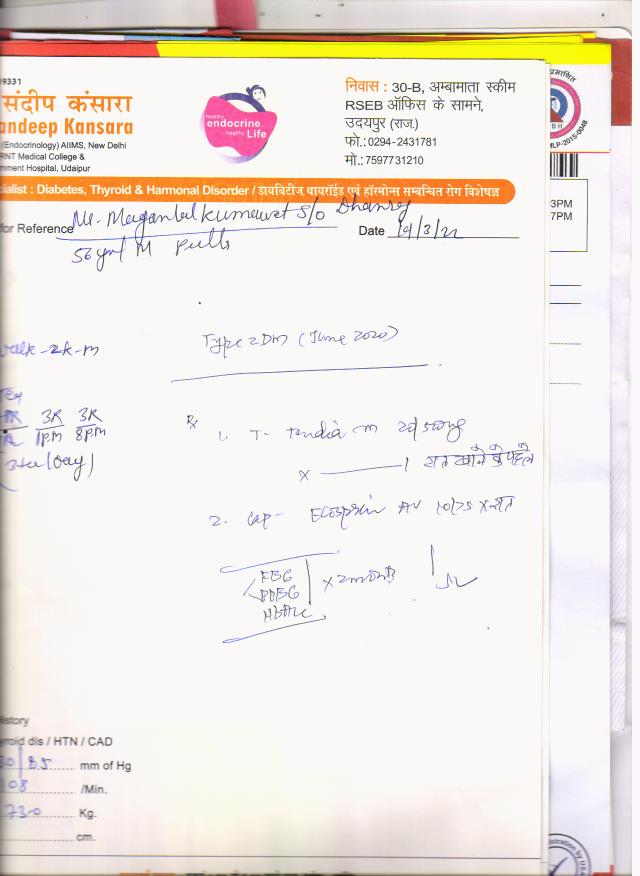 9331
संदीप कंसारा
andeep Kansara
(Endocrinology) AIIMS, New Delhi
RNT Medical College &
nment Hospital, Udaipur
healthy
endocrine
healthy Life
निवास : 30-B, अम्बामाता स्कीम
RSEB ऑफिस के सामने,
उदयपुर (राज.)
फो.:0294-2431781
मो.:7597731210
cialist : Diabetes, Thyroid & Harmonal Disorder / डायबिटीज, थायरॉईड एवं हॉरमोन्स सम्बन्धित रोग विशेषज्ञ
for Reference Mr. S/o
Date 19/3/22
56 M
walk-2k-m
Type 2DM (June 2020)
3R 3R
1pm 8pm
(Day)
Rx
1. T-
x 1 रात खाने के पहले
2. Cap- Ecosprin AV 10/75 x रात
FBG
PPBG x 2 month
HbA1c
History
yroid dis / HTN / CAD
30/85 mm of Hg
108 /Min.
73.0 Kg.
cm.
3PM
7PM
MLP-2015-0048